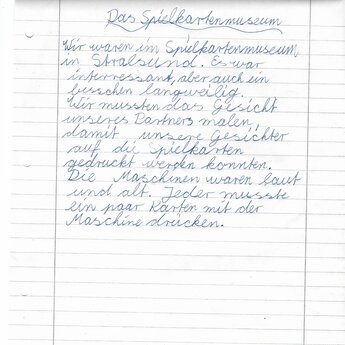 Das Spielkartenmuseum
Wir waren im Spielkartenmuseum
in Stralsund. Es war
interressant, aber auch ein
besschen langweilig.
Wir mussten das Gesicht
unseres Partners malen,
damit unsere Gesichter
auf die Spielkarten
gedruckt werden konnten.
Die Maschinen waren laut
und alt. Jeder musste
ein paar Karten mit der
Maschine drucken.